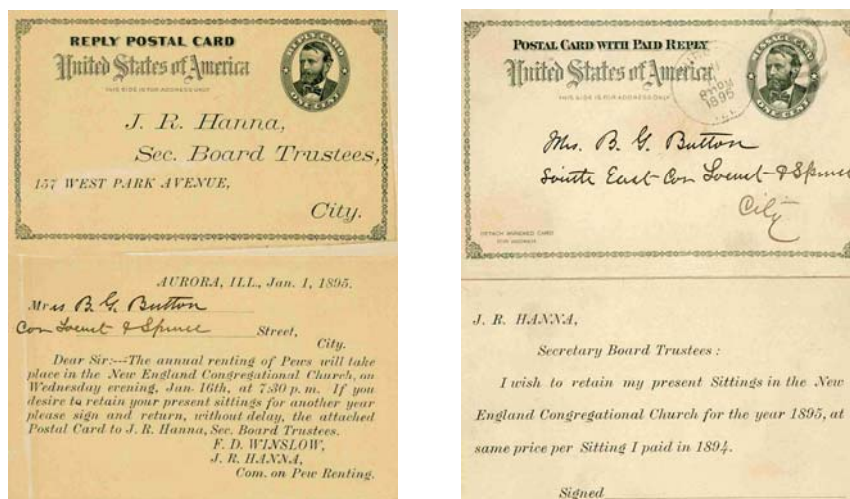 REPLY POSTAL CARD
United States of America
THIS SIDE IS FOR ADDRESS ONLY
REPLY CARD
ONE CENT
J. R. Hanna,
Sec. Board Trustees,
157 WEST PARK AVENUE,
City.
AURORA, ILL., Jan. 1, 1895.
Mrs B. G. Button
Cor Locust & Spruce Street,
City.
Dear Sir:---The annual renting of Pews will take
place in the New England Congregational Church, on
Wednesday evening, Jan. 16th, at 7:30 p. m. If you
desire to retain your present sittings for another year
please sign and return, without delay, the attached
Postal Card to J. R. Hanna, Sec. Board Trustees.
F. D. WINSLOW,
J. R. HANNA,
Com. on Pew Renting.
POSTAL CARD WITH PAID REPLY
United States of America
THIS SIDE IS FOR ADDRESS ONLY
MESSAGE CARD
ONE CENT
1895
ILL
Mrs. B. G. Button
South East Cor Locust & Spruce
City
DETACH ANNEXED CARD
FOR ANSWER
J. R. HANNA,
Secretary Board Trustees :
I wish to retain my present Sittings in the New
England Congregational Church for the year 1895, at
same price per Sitting I paid in 1894.
Signed